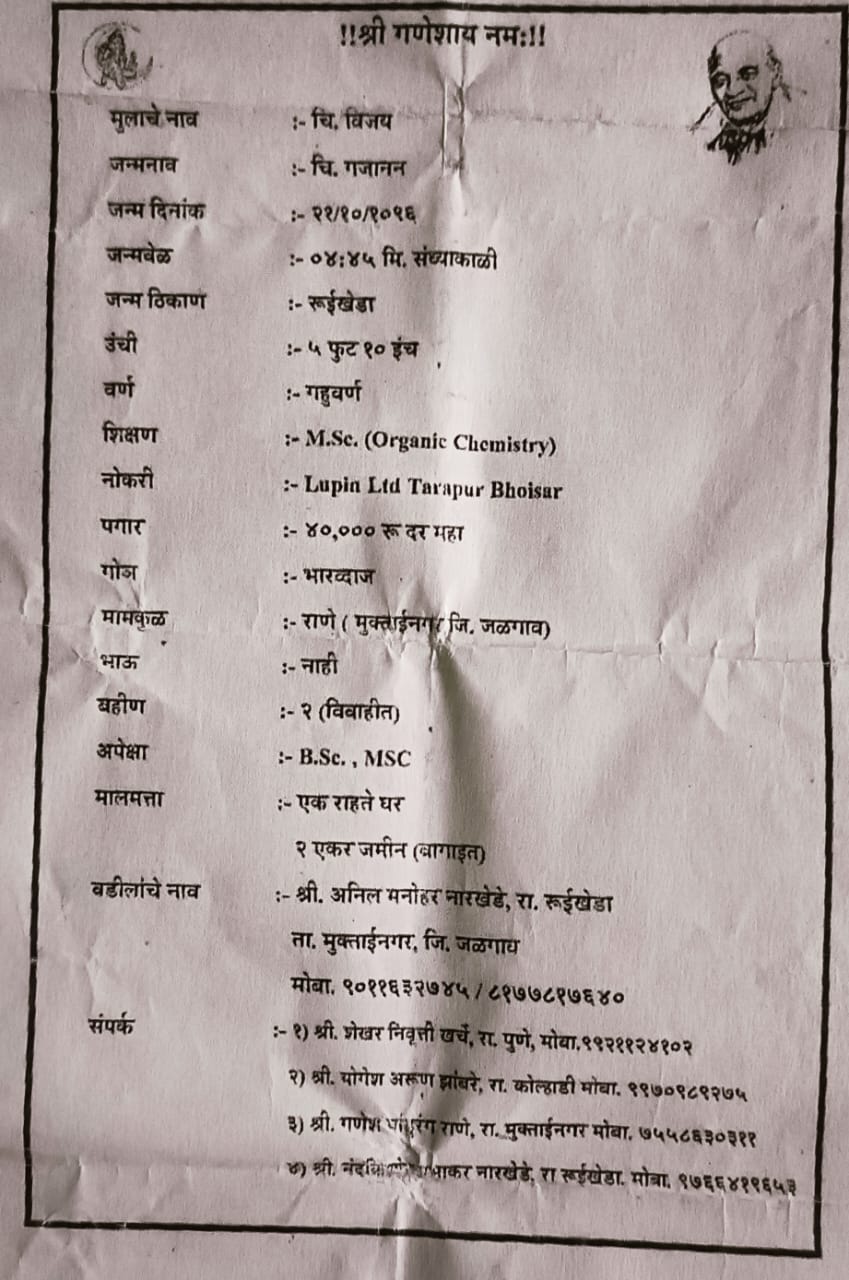 !!श्री गणेशाय नमः!!
मुलाचे नाव :- चि. विजय
जन्मनाव :- चि. गजानन
जन्म दिनांक :- २१/१०/१०९६
जन्मवेळ :- ०४:४५ मि. संध्याकाळी
जन्म ठिकाण :- रूईखेडा
उंची :- ५ फुट १० इंच
वर्ण :- गहुवर्ण
शिक्षण :- M.Sc. (Organic Chemistry)
नोकरी :- Lupin Ltd Tarapur Bhoisar
पगार :- ४०,००० रू दर महा
गोञ :- भारव्दाज
मामकुळ :- राणे ( मुक्ताईनगर जि. जळगाव)
भाऊ :- नाही
बहीण :- २ (विवाहीत)
अपेक्षा :- B.Sc. , MSC
मालमत्ता :- एक राहते घर
२ एकर जमीन (बागाइत)
वडीलांचे नाव :- श्री. अनिल मनोहर नारखेडे, रा. रूईखेडा
ता. मुक्ताईनगर, जि. जळगाव
मोबा. ९०११६३२७४५ / ८१७७८१७६४०
संपर्क :- १) श्री. शेखर निवृत्ती खर्चे, रा. पुणे, मोबा.९९२११२४१०२
२) श्री. योगेश अरूण झांबरे, रा. कोल्हाडी मोबा. ९९७०९८९२७५
३) श्री. गणेश राणे, रा. मुक्ताईनगर मोबा. ७५५८६३०३११
४) श्री. नारखेडे, रा रूईखेडा. मोबा. ९७६६४१९६५३